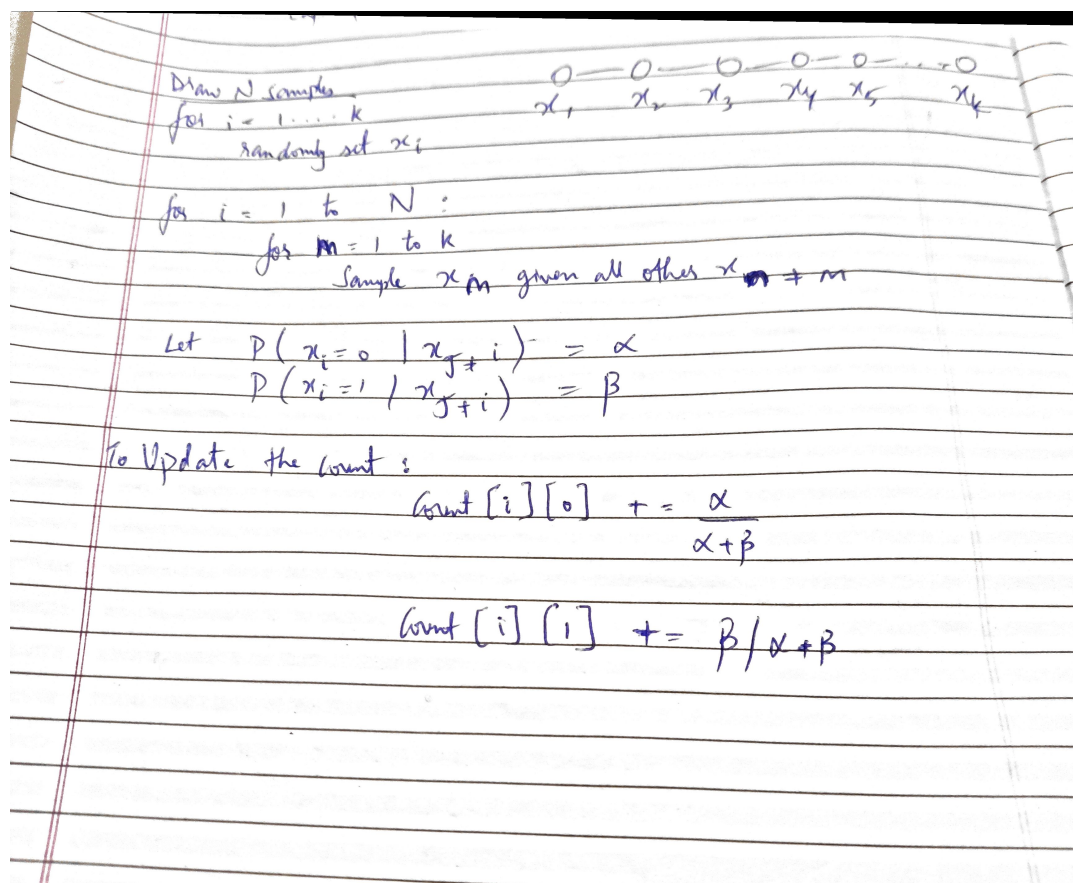 Draw N samples
for i = 1 .... k
randomly set xᵢ
x₁ x₂ x₃ x₄ x₅ xₖ
for i = 1 to N :
for m = 1 to k
Sample xₘ given all other x ≠ m
Let P( xᵢ = 0 | x_J≠i ) = α
P( xᵢ = 1 / x_J≠i ) = β
To Update the Count :
Count [i] [0] + = α
α+β
Count [i] [1] += β/α+β